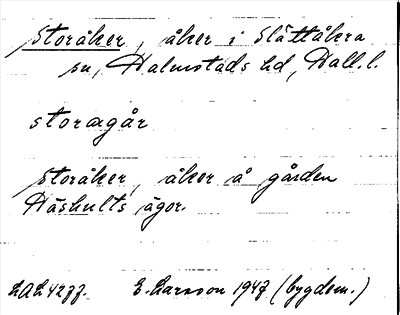 Storåker, åker i Slättåkra
sn, Halmstads hd, Hall. l.
storægår
Storåker, åker å gården
Håshults ägor.
LAL 4277. E. Larsson 1947 (bygdem.)